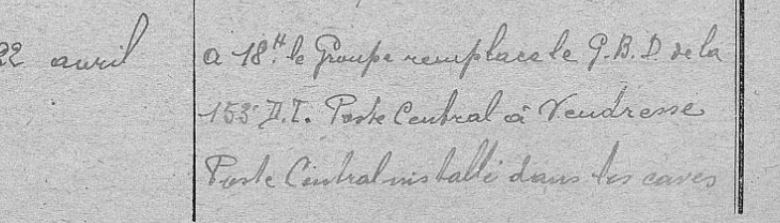 22 avril a 18H. le Groupe remplace le G.B.D. de la
153e D.I. Poste Central à Vendresse
Poste Central installé dans les caves